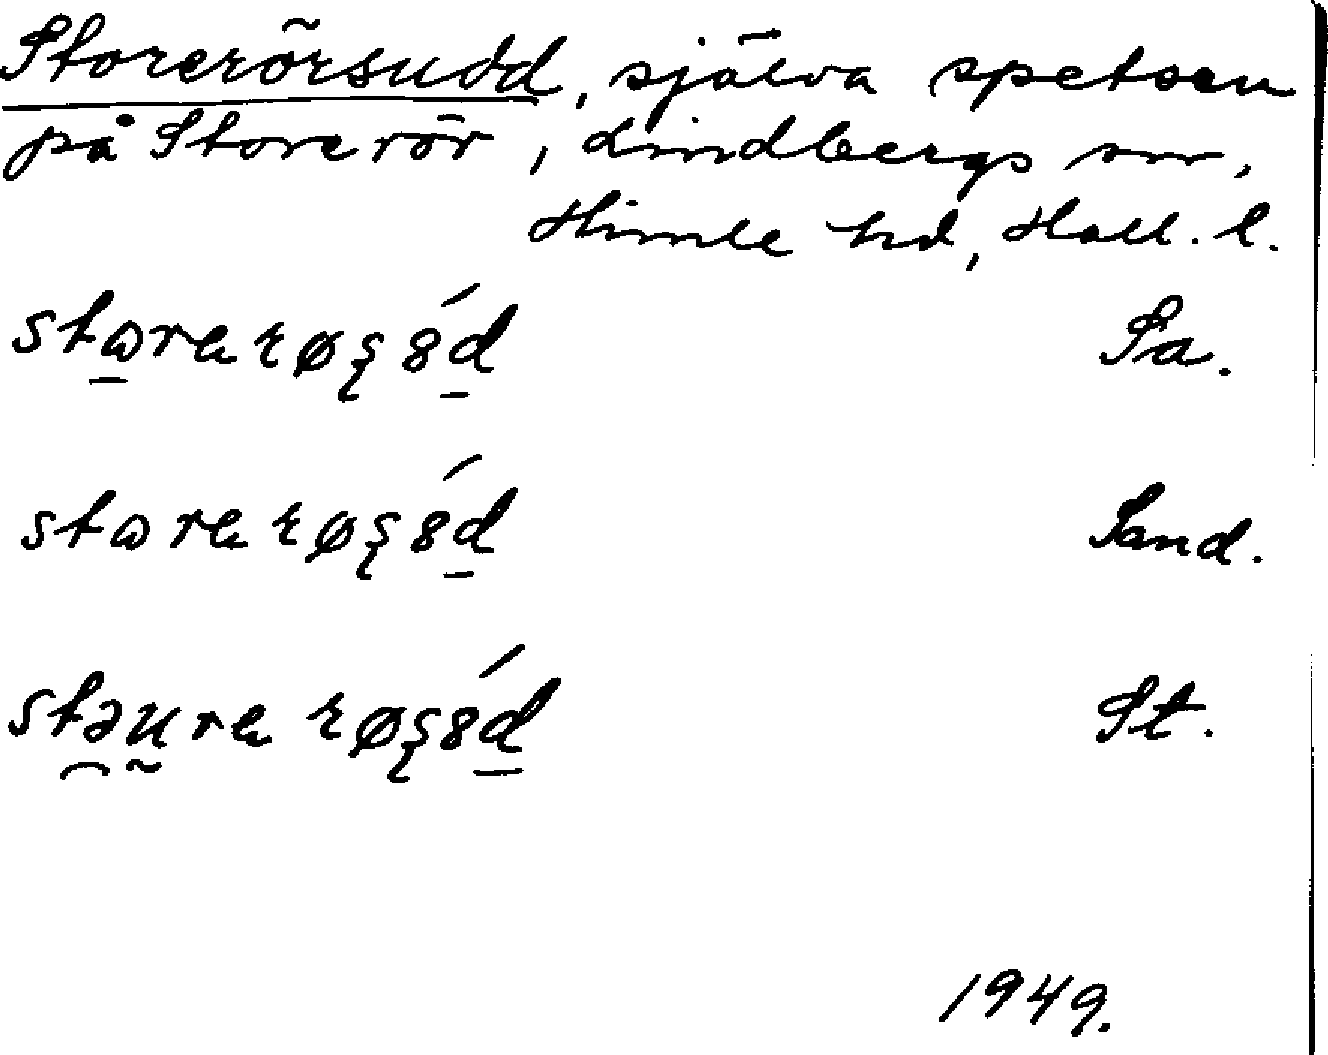 Storerörsudd, själva spetsen
på Storerör, Lindbergs sn,
Himle hd, Hall. l.
stωrarøʂ8́d Sa.
stωrarøʂ8́d Sand.
stəu̯rarøʂ8́d St.
1949.